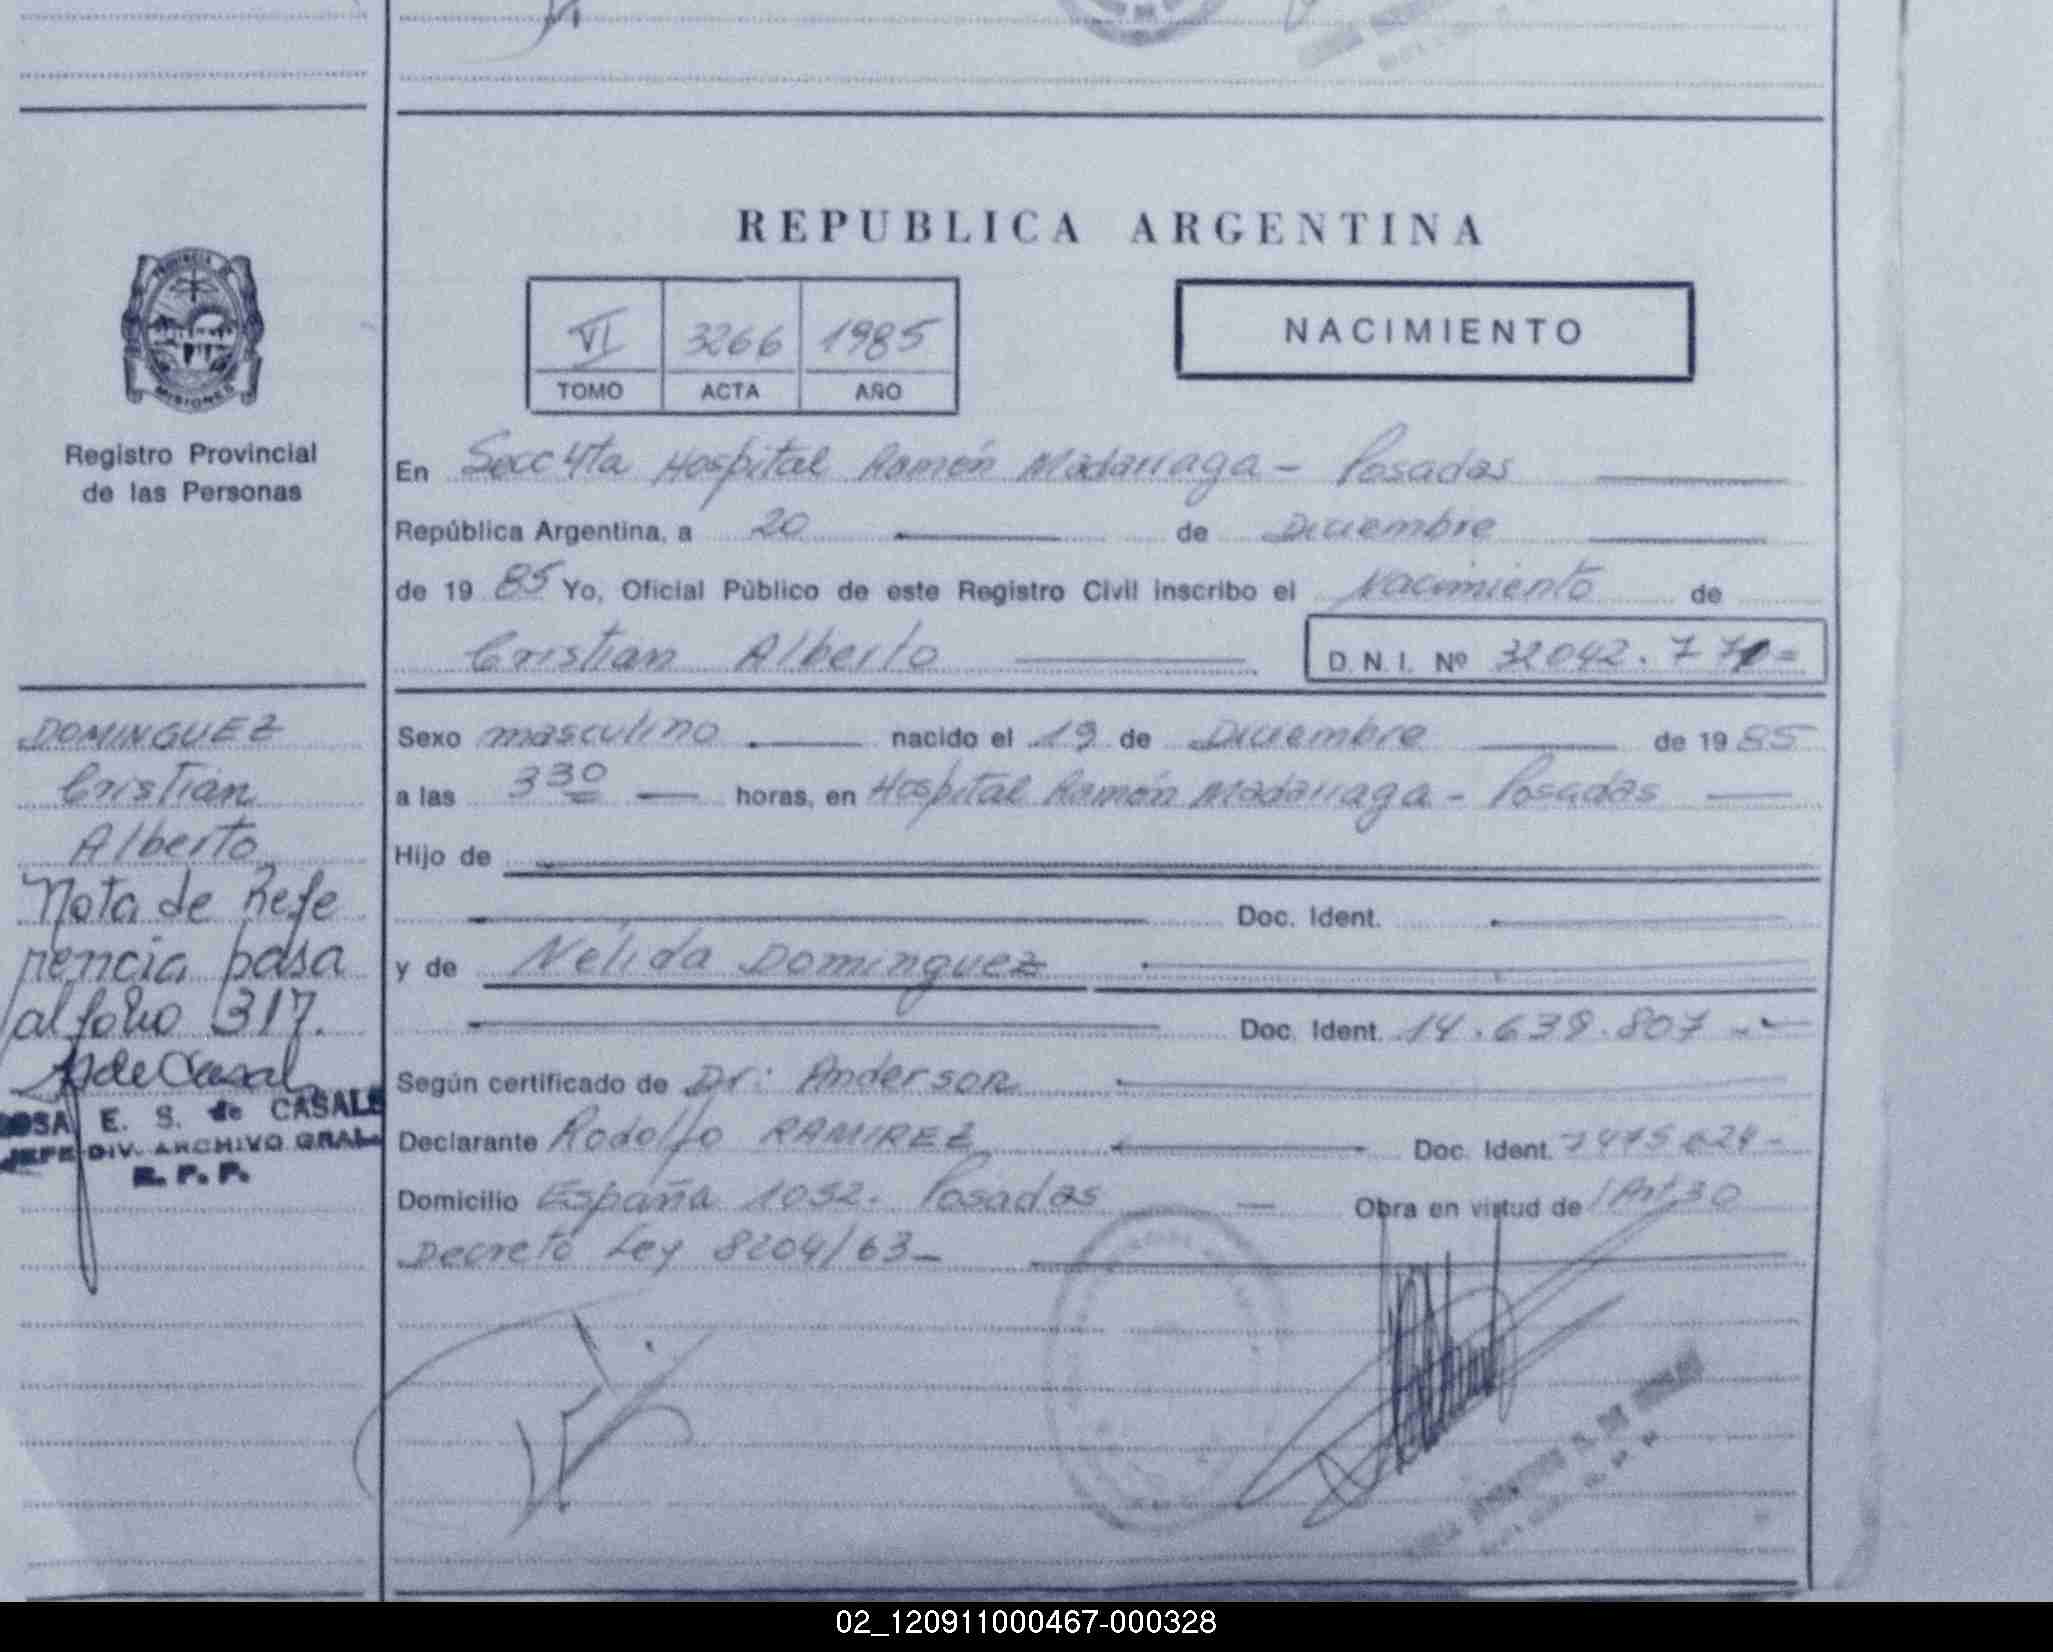 REPUBLICA ARGENTINA
PROVINCIA DE
MISIONES
Registro Provincial
de las Personas
VI 3266 1985
TOMO ACTA AÑO
NACIMIENTO
En Secc 4ta Hospital Ramón Madarriaga - Posadas
República Argentina, a 20 de Diciembre
de 19 85 Yo, Oficial Público de este Registro Civil inscribo el Nacimiento de
Cristian Alberto D. N. I. Nº
DOMINGUEZ
Cristian
Alberto
Nota de Refe
rencia pasa
al folio 317.
ROSA E. S. de CASALS
JEFE DIV. ARCHIVO GRAL.
R. P. P.
Sexo masculino nacido el 19 de Diciembre de 19 85
a las 3 30 horas, en Hospital Ramón Madarriaga - Posadas
Hijo de
Doc. Ident.
y de Nélida Dominguez
Doc. Ident. 14.639.807
Según certificado de Dr: Anderson
Declarante Rodolfo RAMIREZ Doc. Ident.
Domicilio España 1032- Posadas Obra en virtud de Art 30
Decreto Ley 8204/63-
02_120911000467-000328